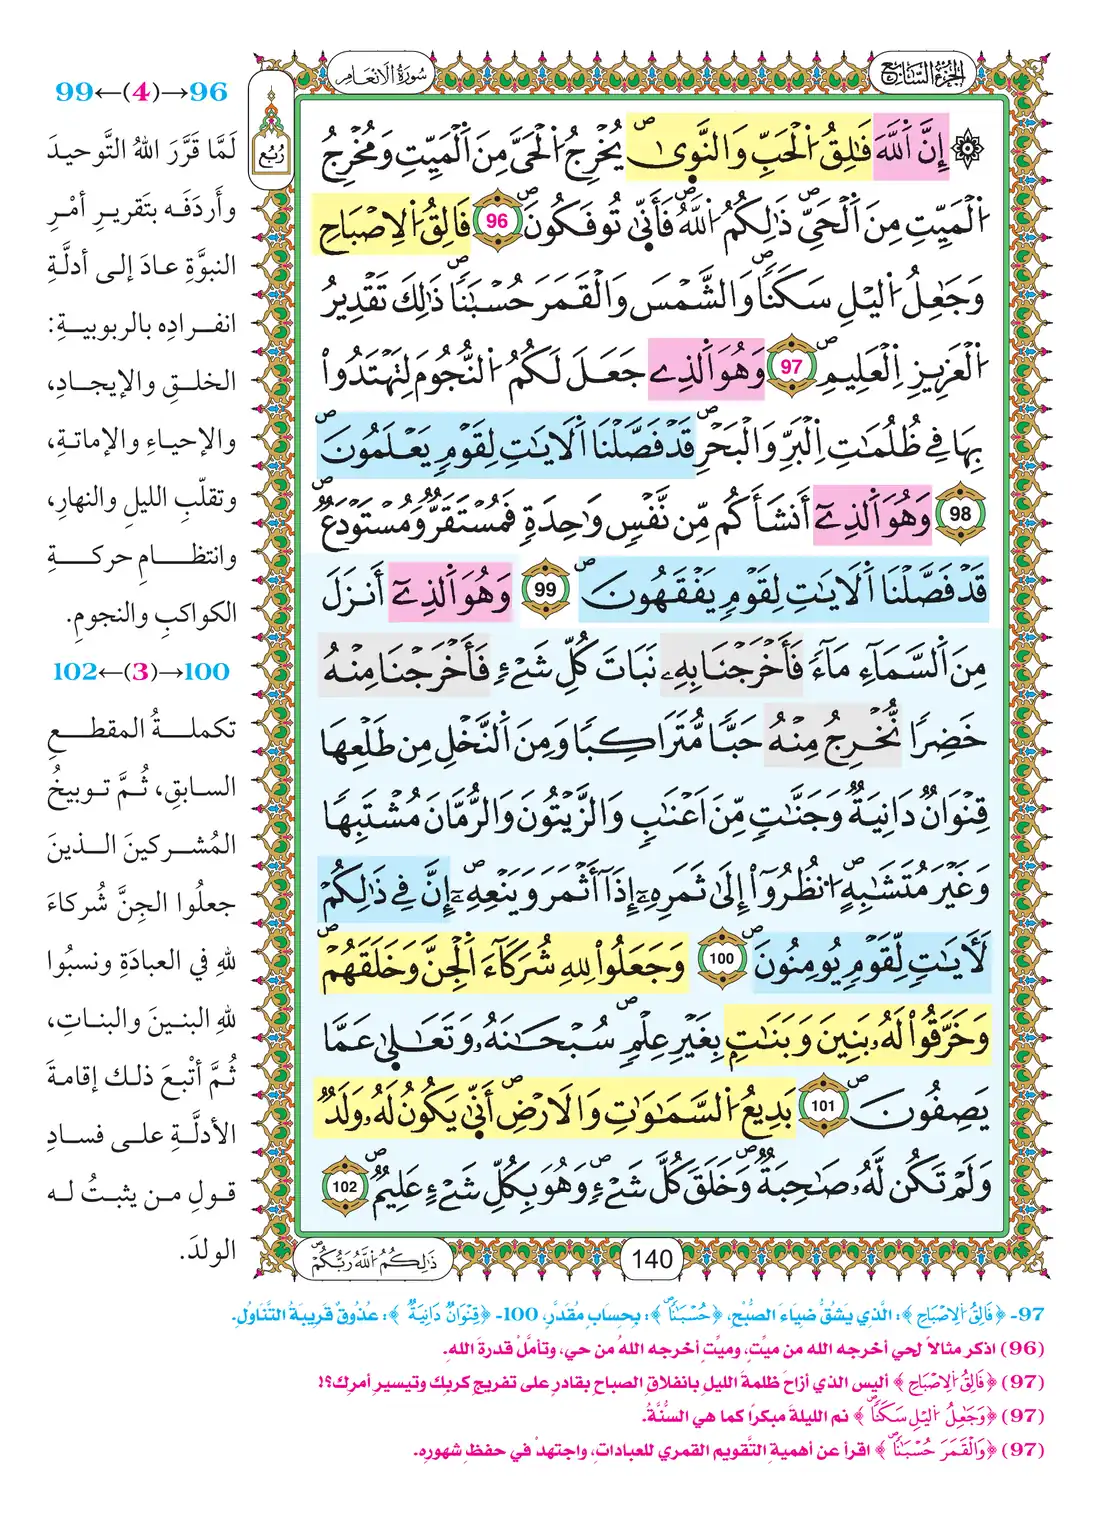 الجزء السابع
سورة الانعام
ربع
إِنَّ اَ۬للَّهَ فَٰلِقُ اُ۬لْحَبِّ وَالنَّو۪ىٰۖ يُخْرِجُ اُ۬لْحَيَّ مِنَ اَ۬لْمَيِّتِ وَمُخْرِجُ
اُ۬لْمَيِّتِ مِنَ اَ۬لْحَيِّۖ ذَٰلِكُمُ اُ۬للَّهُۖ فَأَنّ۪ىٰ تُوفَكُونَۖ 96 فَالِقُ اُ۬لِاصْبَاحِ
وَجَٰعِلُ اُ۬ليْلِ سَكَناٗۖ وَالشَّمْسَ وَالْقَمَرَ حُسْبَٰناٗۖ ذَٰلِكَ تَقْدِيرُ
اُ۬لْعَزِيزِ اِ۬لْعَلِيمِۖ 97 وَهُوَ اَ۬لذِے جَعَلَ لَكُمُ اُ۬لنُّجُومَ لِتَهْتَدُواْ
بِهَا فِے ظُلُمَٰتِ اِ۬لْبَرِّ وَالْبَحْرِۖ قَدْ فَصَّلْنَا اَ۬لَايَٰتِ لِقَوْمٖ يَعْلَمُونَۖ
98 وَهُوَ اَ۬لذِےٓ أَنشَأَكُم مِّن نَّفْسٖ وَٰحِدَةٖ فَمُسْتَقَرّٞ وَمُسْتَوْدَعٞۖ
قَدْ فَصَّلْنَا اَ۬لَايَٰتِ لِقَوْمٖ يَفْقَهُونَۖ 99 وَهُوَ اَ۬لذِےٓ أَنزَلَ
مِنَ اَ۬لسَّمَآءِ مَآءٗ فَأَخْرَجْنَا بِهِۦ نَبَاتَ كُلِّ شَےْءٖ فَأَخْرَجْنَا مِنْهُ
خَضِراٗ نُّخْرِجُ مِنْهُ حَبّاٗ مُّتَرَاكِباٗ وَمِنَ اَ۬لنَّخْلِ مِن طَلْعِهَا
قِنْوَانٞ دَانِيَةٞ وَجَنَّٰتٖ مِّنَ اَعْنَٰبٖ وَالزَّيْتُونَ وَالرُّمَّانَ مُشْتَبِهاٗ
وَغَيْرَ مُتَشَٰبِهٍۖ اُ۟نظُرُوٓاْ إِلَىٰ ثَمَرِهِۦٓ إِذَآ أَثْمَرَ وَيَنْعِهِۦٓۖ إِنَّ فِے ذَٰلِكُمْ
لَأٓيَٰتٖ لِّقَوْمٖ يُومِنُونَۖ 100 وَجَعَلُواْ لِلهِ شُرَكَآءَ اَ۬لْجِنَّ وَخَلَقَهُمْۖ
وَخَرَّقُواْ لَهُۥ بَنِينَ وَبَنَٰتِۢ بِغَيْرِ عِلْمٖۖ سُبْحَٰنَهُۥ وَتَعَٰل۪ىٰ عَمَّا
يَصِفُونَۖ 101 بَدِيعُ اُ۬لسَّمَٰوَٰتِ وَالَارْضِۖ أَنّ۪ىٰ يَكُونُ لَهُۥ وَلَدٞ
وَلَمْ تَكُن لَّهُۥ صَٰحِبَةٞۖ وَخَلَقَ كُلَّ شَےْءٖۖ وَهُوَ بِكُلِّ شَےْءٍ عَلِيمٞۖ 102
96→(4)←99
لَمَّا قَرَّرَ اللهُ التَّوحيدَ
وأَردَفَه بتَقريرِ أمْرِ
النبوَّةِ عادَ إلى أدلَّةِ
انفرادِه بالربوبيةِ:
الخلقِ والإيجادِ،
والإحياءِ والإماتةِ،
وتقلّبِ الليلِ والنهارِ،
وانتظامِ حركةِ
الكواكبِ والنجومِ.
100→(3)←102
تكملةُ المقطعِ
السابقِ، ثُمَّ توبيخُ
المُشركينَ الذينَ
جعلُوا الجِنَّ شُركاءَ
للهِ في العبادَةِ ونسبُوا
للهِ البنينَ والبناتِ،
ثُمَّ أتْبعَ ذلكَ إقامةَ
الأدلَّةِ على فسادِ
قولِ من يثبتُ له
الولدَ.
140
ذَٰلِكُمُ اُ۬للَّهُ رَبُّكُمْۖ
97- ﴿فَالِقُ اُ۬لِاصْبَاحِ﴾: الَّذي يَشُقُّ ضِيَاءَ الصُّبْحِ، ﴿حُسْبَٰناٗۖ﴾: بِحِسَابٍ مُقَدَّرٍ، 100- ﴿قِنْوَانٞ دَانِيَةٞ﴾: عُذُوقٌ قَرِيبَةُ التَّنَاوُلِ.
(96) اذكر مثالاً لحي أخرجه الله من ميِّت، وميِّتٍ أخرجه اللهُ من حي، وتأمَّلْ قدرةَ اللهِ.
(97) ﴿فَالِقُ اُ۬لِاصْبَاحِ﴾ أليس الذي أزاحَ ظلمةَ الليلِ بانفلاقِ الصباح بقادرٍ على تفريجِ كربِك وتيسيرِ أمرِك؟!
(97) ﴿وَجَٰعِلُ اُ۬ليْلِ سَكَناٗۖ﴾ نم الليلةَ مبكرًا كما هي السُّنَّةُ.
(97) ﴿وَالْقَمَرَ حُسْبَٰناٗۖ﴾ اقرأ عن أهميةِ التَّقويم القمري للعباداتِ، واجتهدْ في حفظِ شهورِه.